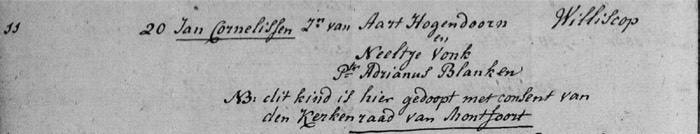 11 20 Jan Cornelissen Zn van Aart Hogendoorn Williscop
en
Neeltje Vonk
Pr Adrianus Blanken
NB: dit kind is hier gedoopt met consent van
den Kerkenraad van Montfoort